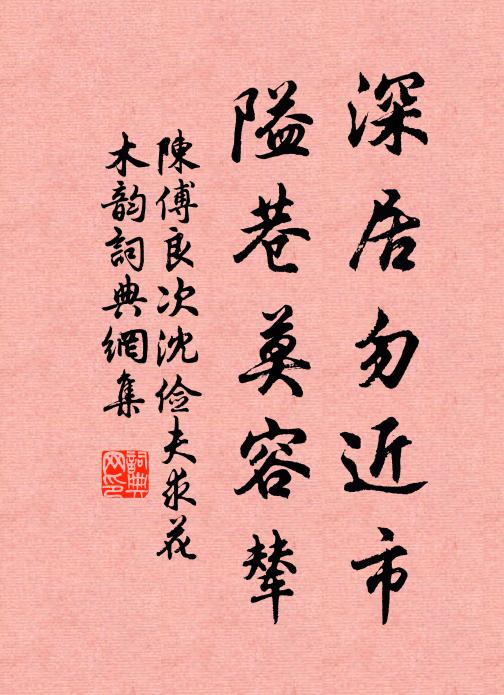 深居勿近市
隘巷莫容輦
陳傅良次沈儉夫求花
木韵詞典網集
詞典网印